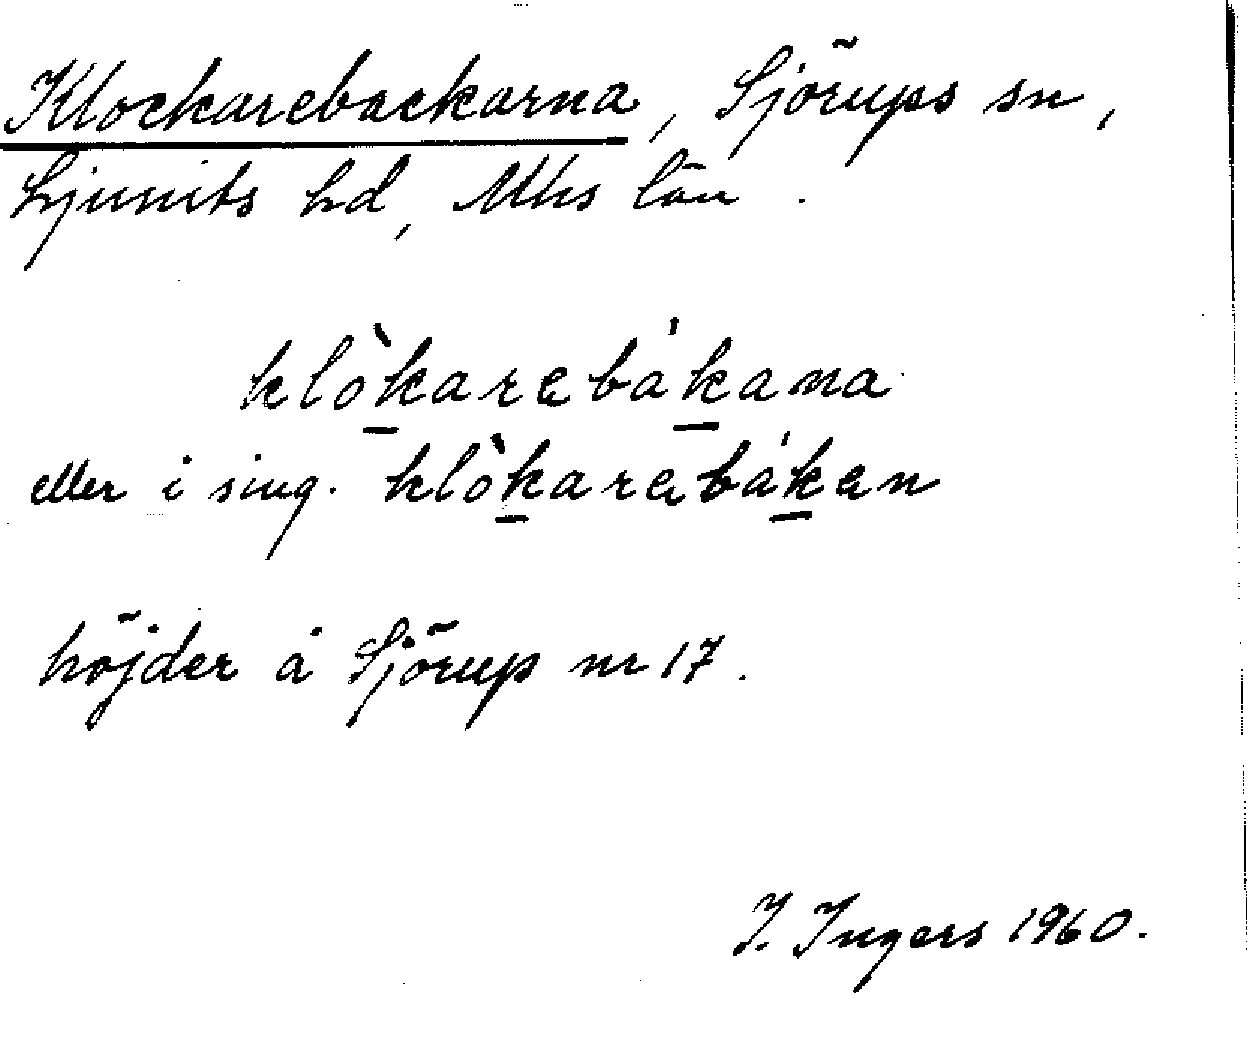 Klockarebackarna, Sjörups sn,
Ljunits hd, Mhs län.
klòkarebákana
eller i sing. klòkarebáken
höjder å Sjörup nr 17.
I. Ingers 1960.